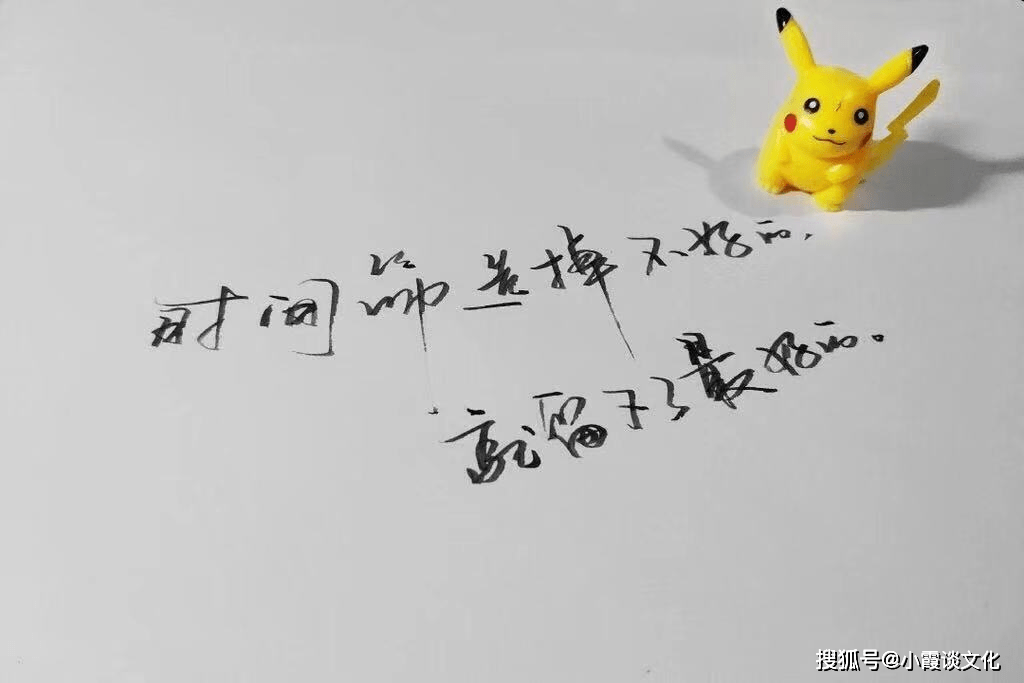 时间筛选掉不好的,
就留下了最好的。
搜狐号@小霞谈文化